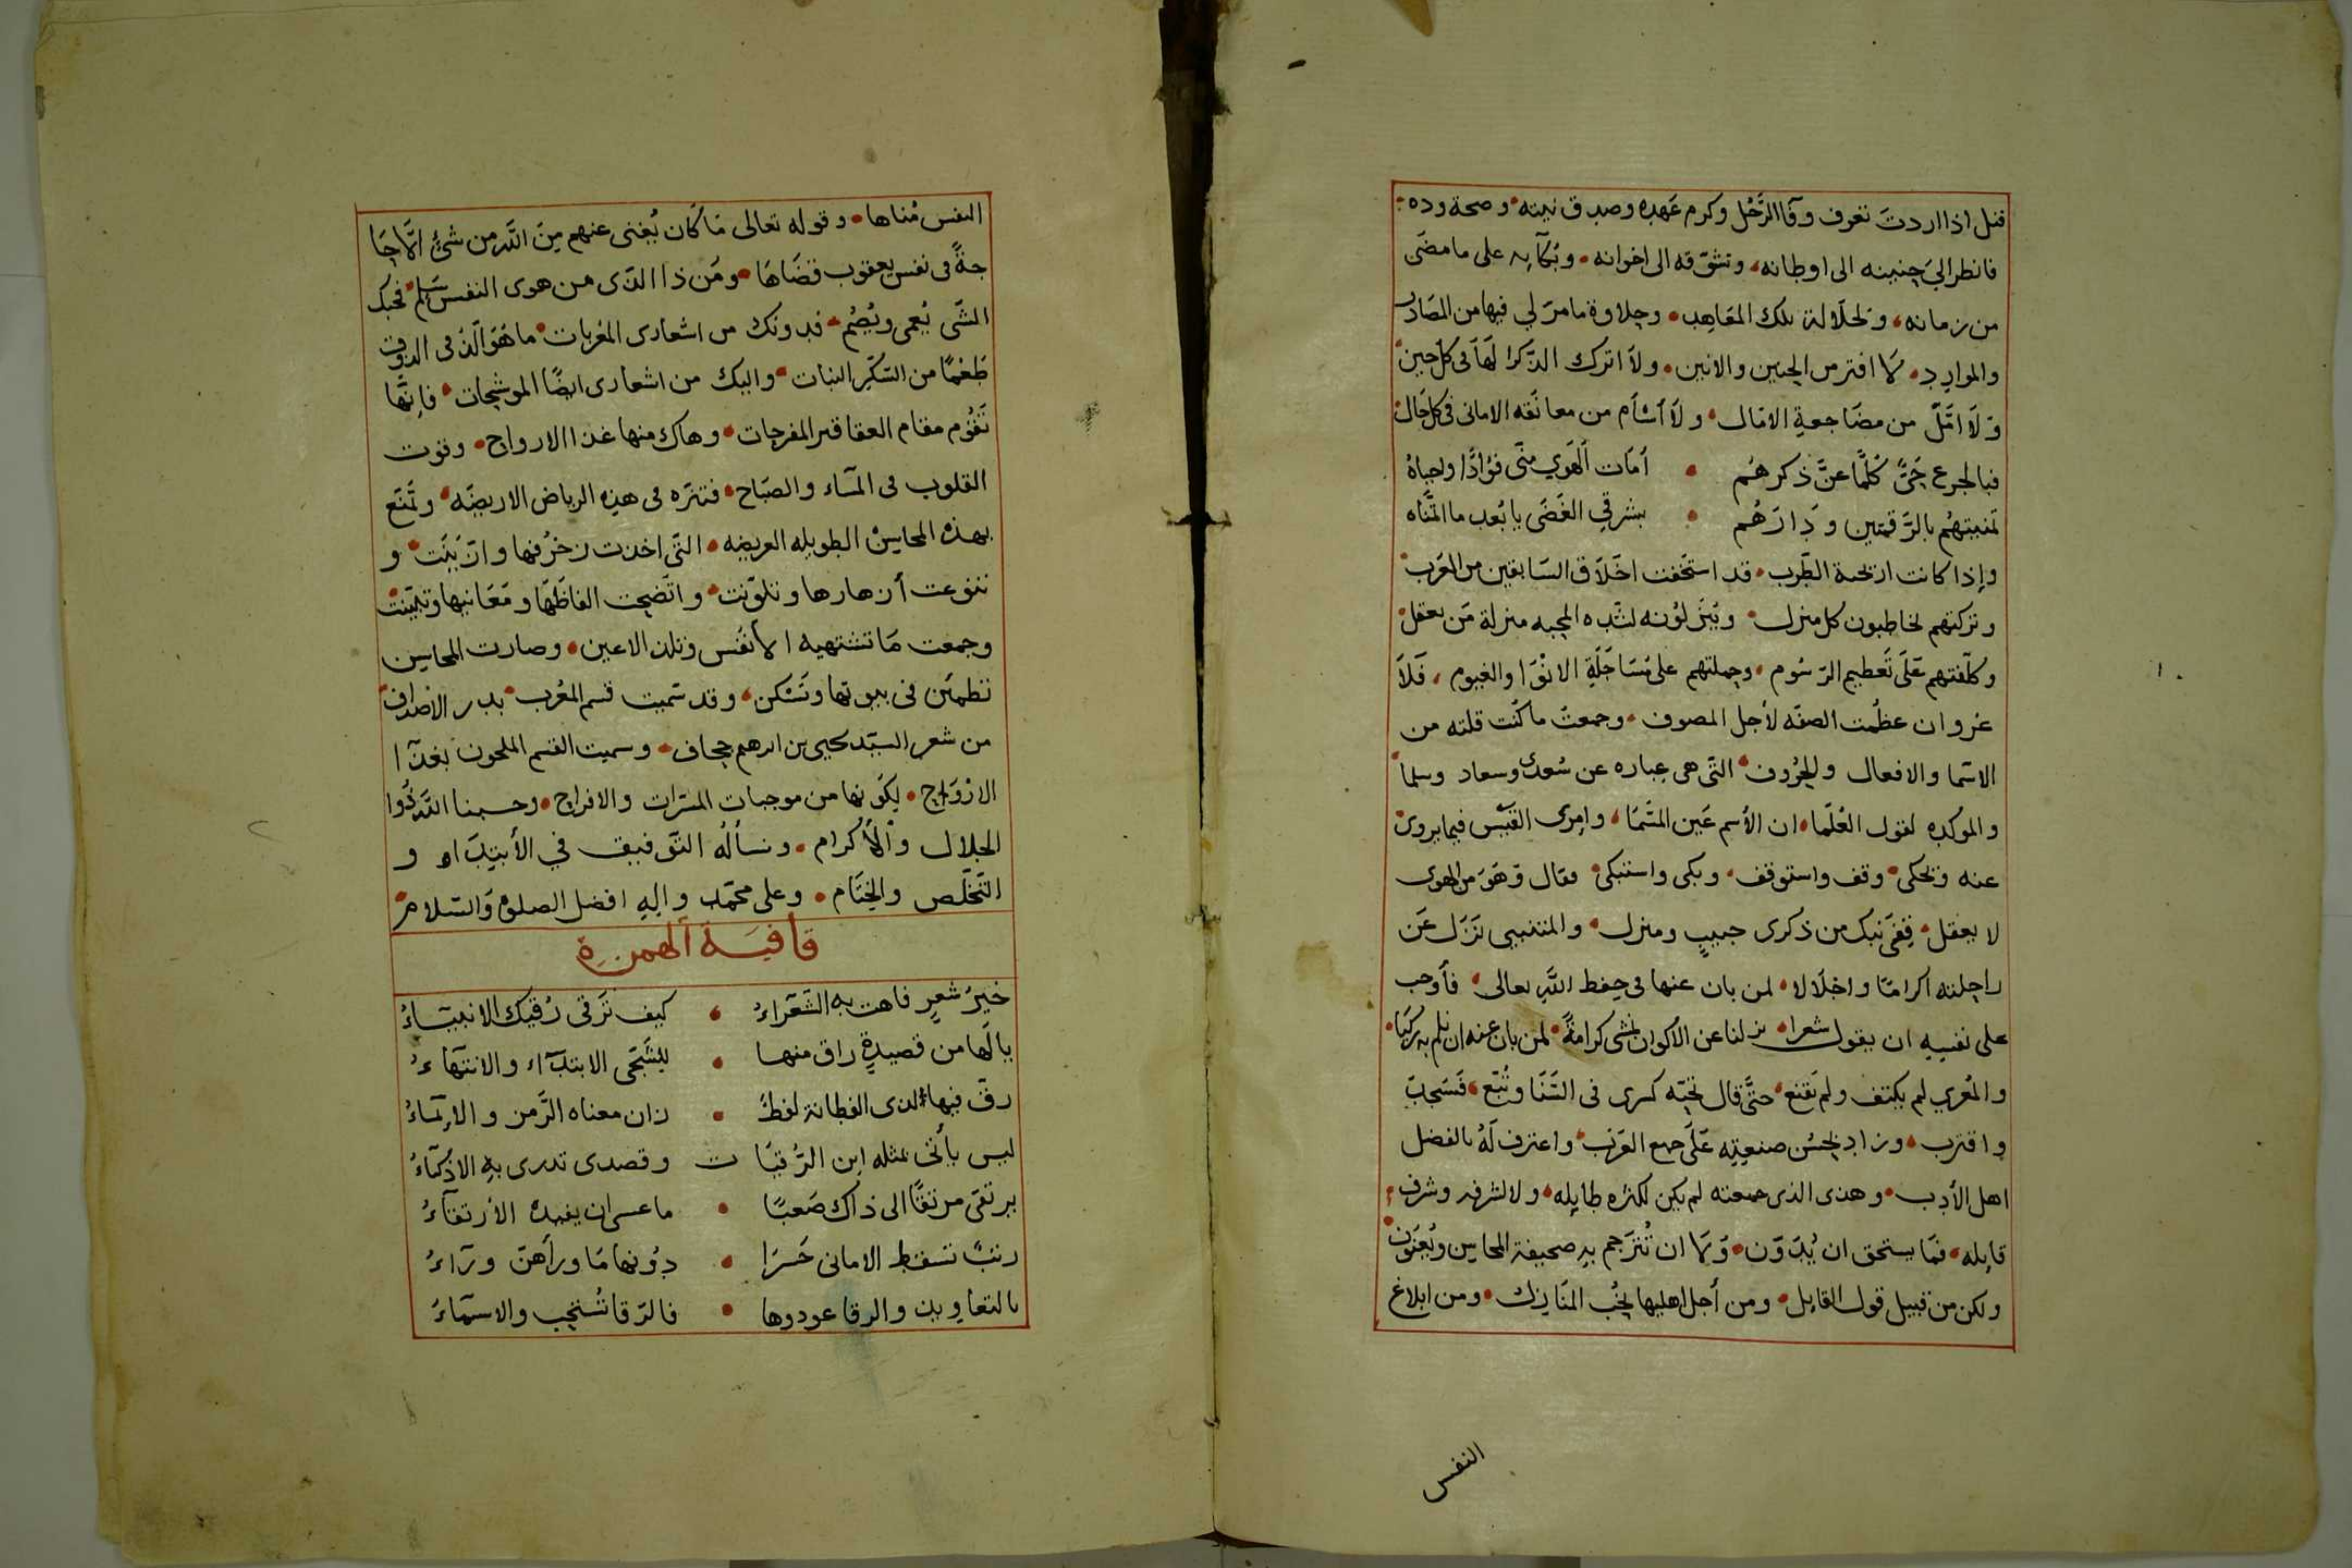 قيل اذا اردت تعرف وفا الرَّجُل وكرم عَهده وصدق نيته وصحة وده
فانظر الىَ حنينه الى اوطانه وتشوّقه الى اخوانه وبُكآيه على ما مضَى
من زمانه ولجلالة تلك المعَاهِد وحلاوة ما مرّ لي فيها من المصَادر
والموارِدِ لا افتر من الحنين والانين ولاَ اترك الذّكرا لهَا فى كل حين
وَلَا امَلّ من مضَاجعةِ الامال ولَا أسْأم من معانَقه الامانى فى كل حَال
فبالجرع حَيٌّ كُلَّما عنَّ ذكرهُم • أمَات الهَوي منّى فؤادًا واحياهُ
تمنيتهُم بالرَّقمَتين ودَارَهُم • بشرقي الغَضَى يا بُعد ما اتمنَّاه
وإذا كانت اريحية الطّرب قد استخفت اخَلَاق السَابقين من العَرب
وتركتهم يخاطبون كل منزل ويُنزلوُنه لشده المحبه منزلة مَن يعقل
وكلّفتهم عَلَى تَعطيم الرّسُوم وحملتهم على مُسَاجَلَةِ الانْوَا والغيوم فَلَا
غروان عظُمت الصفّه لأجل الموصوف وجمعتُ ما كُنت قلته من
الاسّما والافعال والحرُوف التى هى عباره عن سُعدى وسعاد وسلما
والموكده لقول العُلَما ان الأسم عَين المسَّمَا وامرى القيَس فيما يروى
عنه ويحكى وقف واستوقف وبكى واستبكى فقال وَهوَ من الهوى
لا يعقل قِفَى نَبك من ذكرى حبيبٍ ومنزل والمتنبيى نَزَل عَن
راحِلته اكرامًا واجلَالا لمن بان عنها فى حِفط اللّهِ تعالى فأوجب
على نفسِهِ ان يقول شعرا نزلنا عن الاكوار نمشى كرامةً لمن بان عنه ان نلم به ركبَا
والمُعري لم يكتف ولم يَقنع حتَّى قال تحيّه كسرى فى السَّنَا وتُبّع فَسَجدَ
واقترب وزاد بحُسُن صنعِتِه عَلَى جميع العرَب واعترف لَهُ بالفضل
اهل الأدب وهذى الذى جمعته لم يكن لكثره طايِله ولا لشرفه وشرف
قايِله فمَا يستحق ان يُدَوّن وَلا ان تُترَجم بهِ صحيفة المحاسِن ويُعَنوَن
ولكن من قبيل قول القايل ومن أجل اهليها تُحبُّ المنَازل ومن ابلاغ
النفس
النفس مُناها وقوله تعالى مَا كَان يُغنى عنهم مِنَ اللّه من شئٍ الّا حَا
جةً فى نفس يعقوب قضَاهَا ومَن ذا الذى من هوى النفس سَلم فحبك
الشّى يُعمى ويُصُم فدونك من اشعارى المعُربات ما هُو الَذُ فى الذوق
طَعْمًا من السّكَّر النبات واليك من اشعارى ايضًا الموشحات فإنهَّا
تَقُوم مقام العقاقير المفرحات وهاك منها غذا الارواح وقوت
القلوب فى المسَاء والصبَاح فتنزّه فى هذه الرياض الاريضَه وتَمتَع
بهذه المحاسِن الطويله العريضه التّى اخذت زخرُفها وازّيَنَت و
تنوعت أزهارها وتلوّنت واتّضحت الفاظَهَا ومَعَانيها وتبيّنت
وجمعت مَا تشتهيه الأنفُس وتلذ الاعين وصارت المحاسِن
تطمئن فى بيوتها وتَسْكن وقد سَميت قسم المُعْرب بدر الاصداف
من شعر السيّد يحيى بن ابرهيم جحاف وسميت القسم الملحون بغذآ ا
الارْوَاح لِكَونها من موجبات المسَرات والافراح وحسبنا اللّه ذُوا
الجلال والأكرام ونسألُه التَوفيق في الأبتِدَاء و
التَّخلّص والخِتَام وعلى محمّدٍ وإلهِ افضل الصلوة وَالسَلام
قافيَة الهمزة
خيرُ شعرٍ فاهت به الشَعَراءُ • كيف تَرقى رُقيَك الانبيَاءُ
يا لَها من قصيدةٍ راق منها • للشَجَى الابتدآء والانتهَاءُ
رقّ فيها لذى الفطانة لفطٌ • زان معناه الرَّمز والإيمَاءُ
ليس يأتى بمثله ابن الرُقيَا ت وقصدى تدرى بهِ الاذكيَاءُ
يرتقى مرتقًا الى ذاك صَعبًا • ما عسى ان يفيده الأرتقآءُ
رتبٌ تسقط الامانى حَسرَا • دوُنها مَا ورآهنّ ورَآءُ
بالتعاويذ والرقا عودوها • فالرّقا تُستحِب والاسمَاءُ